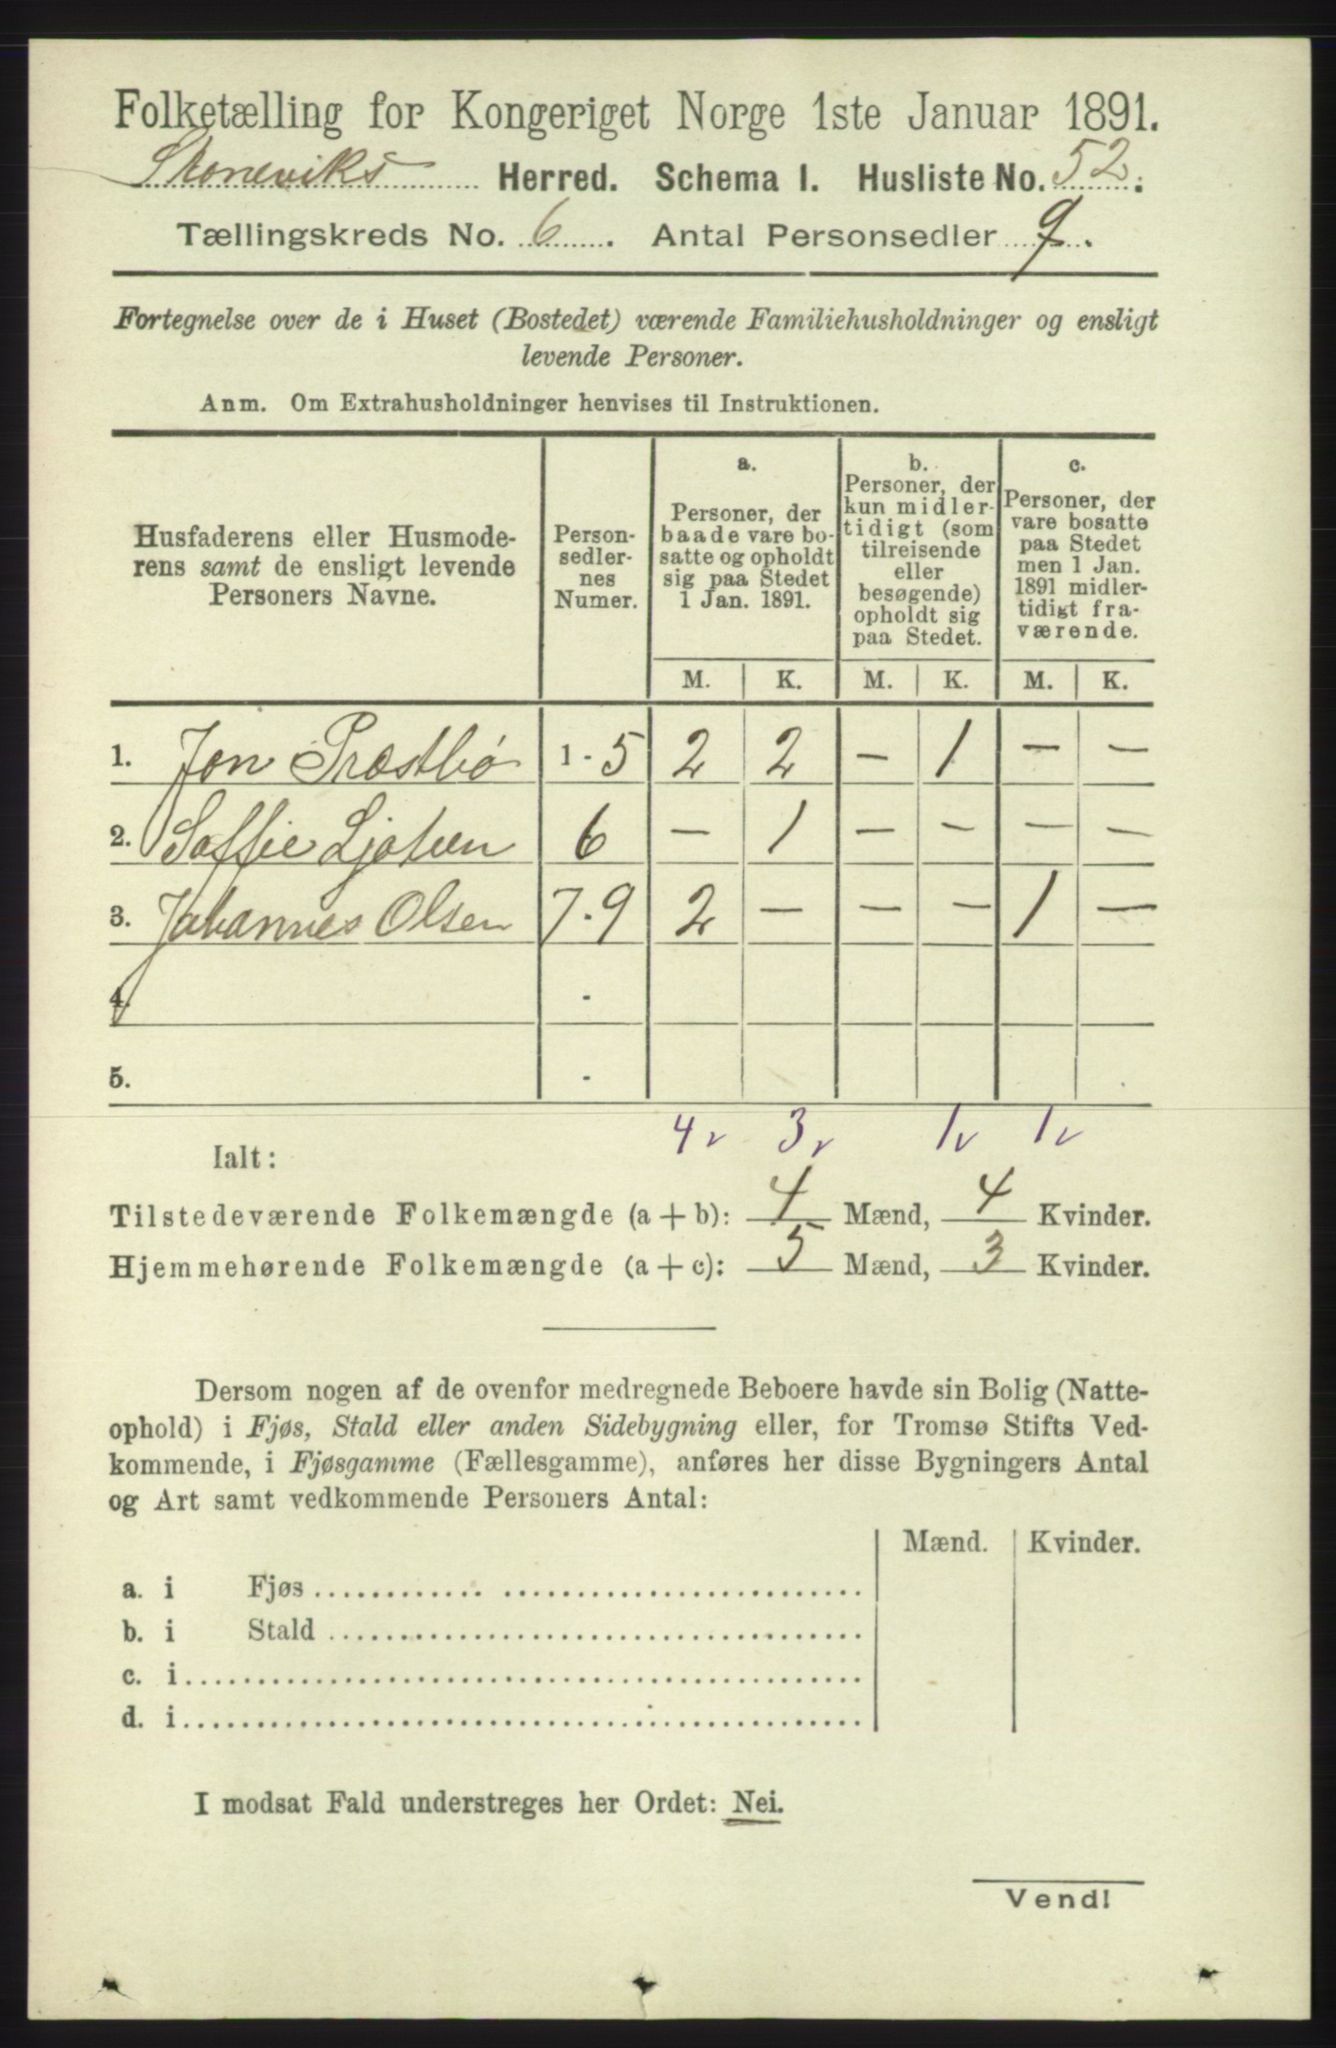 Folketælling for Kongeriget Norge 1ste Januar 1891.
Skoneviks Herred. Schema I. Husliste No. 52.
Tællingskreds No. 6. Antal Personsedler 9.
Fortegnelse over de i Huset (Bostedet) værende Familiehusholdninger og ensligt
levende Personer.
Anm. Om Extrahusholdninger henvises til Instruktionen.
Husfaderens eller Husmode-
rens samt de ensligt levende
Personers Navne.
Person-
sedler-
nes
Numer.
a.
Personer, der
baade vare bo-
satte og opholdt
sig paa Stedet
1 Jan. 1891.
b.
Personer, der
kun midler-
tidigt (som
tilreisende
eller
besøgende)
opholdt sig
paa Stedet.
c.
Personer, der
vare bosatte
paa Stedet
men 1 Jan.
1891 midler-
tidigt fra-
værende.
M. K. M. K. M. K.
1. Jon Præstbø 1-5 2 2 — 1 — —
2. Soffie Ljoten 6 — 1 — — — —
3. Johannes Olsen 7-9 2 — — — 1 —
4. -
5. -
4 v 3 v 1 v 1 v
Ialt:
Tilstedeværende Folkemængde (a + b): 4 Mænd, 4 Kvinder.
Hjemmehørende Folkemængde (a + c): 5 Mænd, 3 Kvinder.
Dersom nogen af de ovenfor medregnede Beboere havde sin Bolig (Natte-
ophold) i Fjøs, Stald eller anden Sidebygning eller, for Tromsø Stifts Ved-
kommende, i Fjøsgamme (Fællesgamme), anføres her disse Bygningers Antal
og Art samt vedkommende Personers Antal:
Mænd. Kvinder.
a. i Fjøs
b. i Stald
c. i
d. i
I modsat Fald understreges her Ordet: Nei.
Vend!